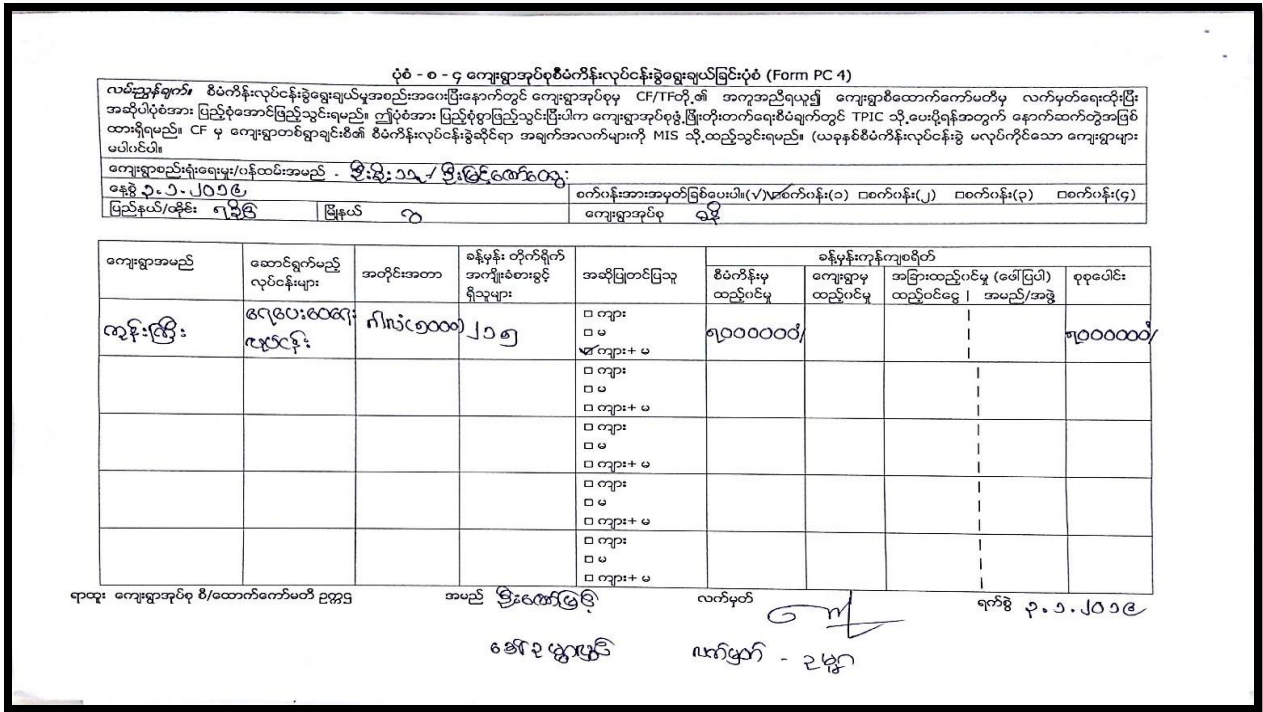 ပုံစံ - စ - ၄ ကျေးရွာအုပ်စုစီမံကိန်းလုပ်ငန်းခွဲရွေးချယ်ခြင်းပုံစံ (Form PC 4)
လမ်းညွှန်ချက်။ စီမံကိန်းလုပ်ငန်းခွဲရွေးချယ်မှုအစည်းအဝေးပြီးနောက်တွင် ကျေးရွာအုပ်စုမှ CF/TFတို့၏ အကူအညီရယူ၍ ကျေးရွာစီထောက်ကော်မတီမှ လက်မှတ်ရေးထိုးပြီး
အဆိုပါပုံစံအား ပြည့်စုံအောင်ဖြည့်သွင်းရမည်။ ဤပုံစံအား ပြည့်စုံစွာဖြည့်သွင်းပြီးပါက ကျေးရွာအုပ်စုဖွံ့ဖြိုးတိုးတက်ရေးစီမံချက်တွင် TPIC သို့ပေးပို့ရန်အတွက် နောက်ဆက်တွဲအဖြစ်
ထားရှိရမည်။ CF မှ ကျေးရွာတစ်ရွာချင်းစီ၏ စီမံကိန်းလုပ်ငန်းခွဲဆိုင်ရာ အချက်အလက်များကို MIS သို့ထည့်သွင်းရမည်။ (ယခုနှစ်စီမံကိန်းလုပ်ငန်းခွဲ မလုပ်ကိုင်သော ကျေးရွာများ
မပါဝင်ပါ။
ကျေးရွာစည်းရုံးရေးမှူး/ဝန်ထမ်းအမည် -
နေ့စွဲ ၃.၁.၂၀၁၉ စက်ဝန်းအားအမှတ်ခြစ်ပေးပါ။(√) ☑စက်ဝန်း(၁) □စက်ဝန်း(၂) □စက်ဝန်း(၃) □စက်ဝန်း(၄)
ပြည်နယ်/တိုင်း ရခိုင် မြို့နယ် ဂွ ကျေးရွာအုပ်စု
ကျေးရွာအမည် ဆောင်ရွက်မည့် လုပ်ငန်းများ အတိုင်းအတာ ခန့်မှန်း တိုက်ရိုက် အကျိုးခံစားခွင့် ရှိသူများ အဆိုပြုတင်ပြသူ ခန့်မှန်းကုန်ကျစရိတ်
စီမံကိန်းမှ ထည့်ဝင်မှု ကျေးရွာမှ ထည့်ဝင်မှု အခြားထည့်ဝင်မှု (ဖေါ်ပြပါ) ထည့်ဝင်ငွေ | အမည်/အဖွဲ့ စုစုပေါင်း
ကျွန်းကြီး ရေပေးဝေရေး လုပ်ငန်း ဂါလံ(၅၀၀၀) ၂၁၅ □ ကျား
□ မ
☑ ကျား+ မ ၅၀၀၀၀၀၀/ ၅၀၀၀၀၀၀/
□ ကျား
□ မ
□ ကျား+ မ
□ ကျား
□ မ
□ ကျား+ မ
□ ကျား
□ မ
□ ကျား+ မ
□ ကျား
□ မ
□ ကျား+ မ
ရာထူး ကျေးရွာအုပ်စု စီ/ထောက်ကော်မတီ ဥက္ကဌ အမည် လက်မှတ် ရက်စွဲ ၃.၁.၂၀၁၉
လက်မှတ် -